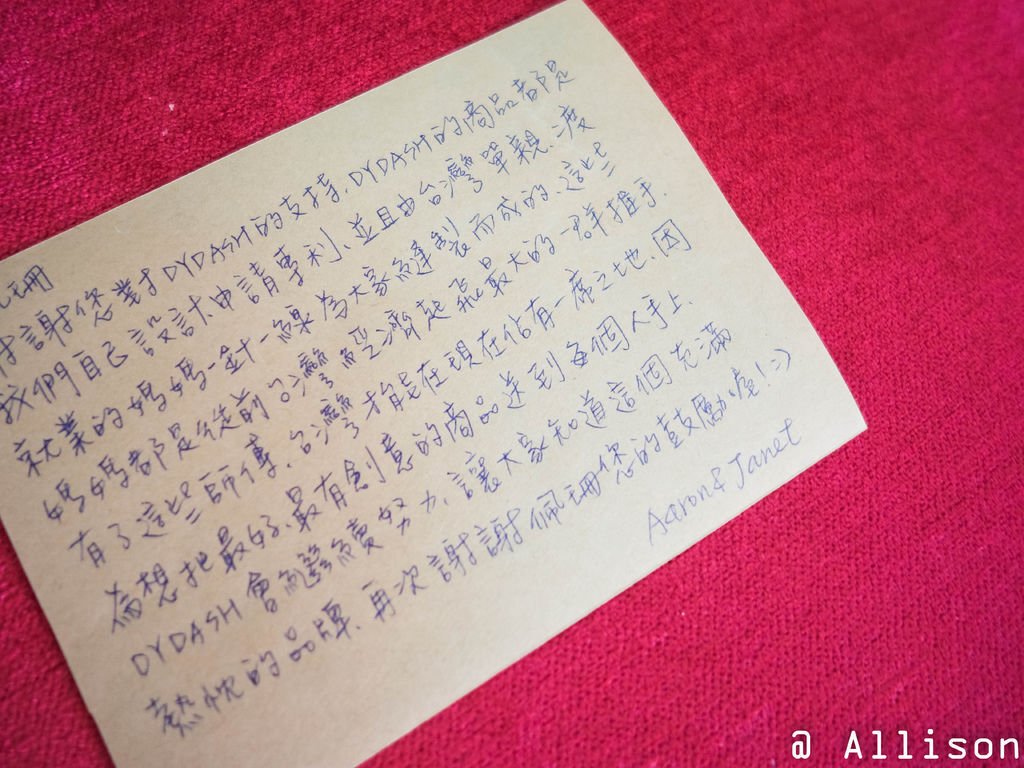 珊
謝您對于DYDASH的支持、DYDASH的商品都是
我們自己設計、申請專利、並且由台灣單親、二度
就業的媽媽一針一線為大家縫製而成的、這些
媽媽都是從前台灣經濟起飛最大的一群推手、
有了這些師傅、台灣才能在現在佔有一席之地、因
為想把最好、最有創意的商品送到每個人手上、
DYDASH會繼續努力、讓大家知道這個充滿
熱忱的品牌、再次謝謝佩珊您的鼓勵喔!:>
Aaron & Janet
@ Allison